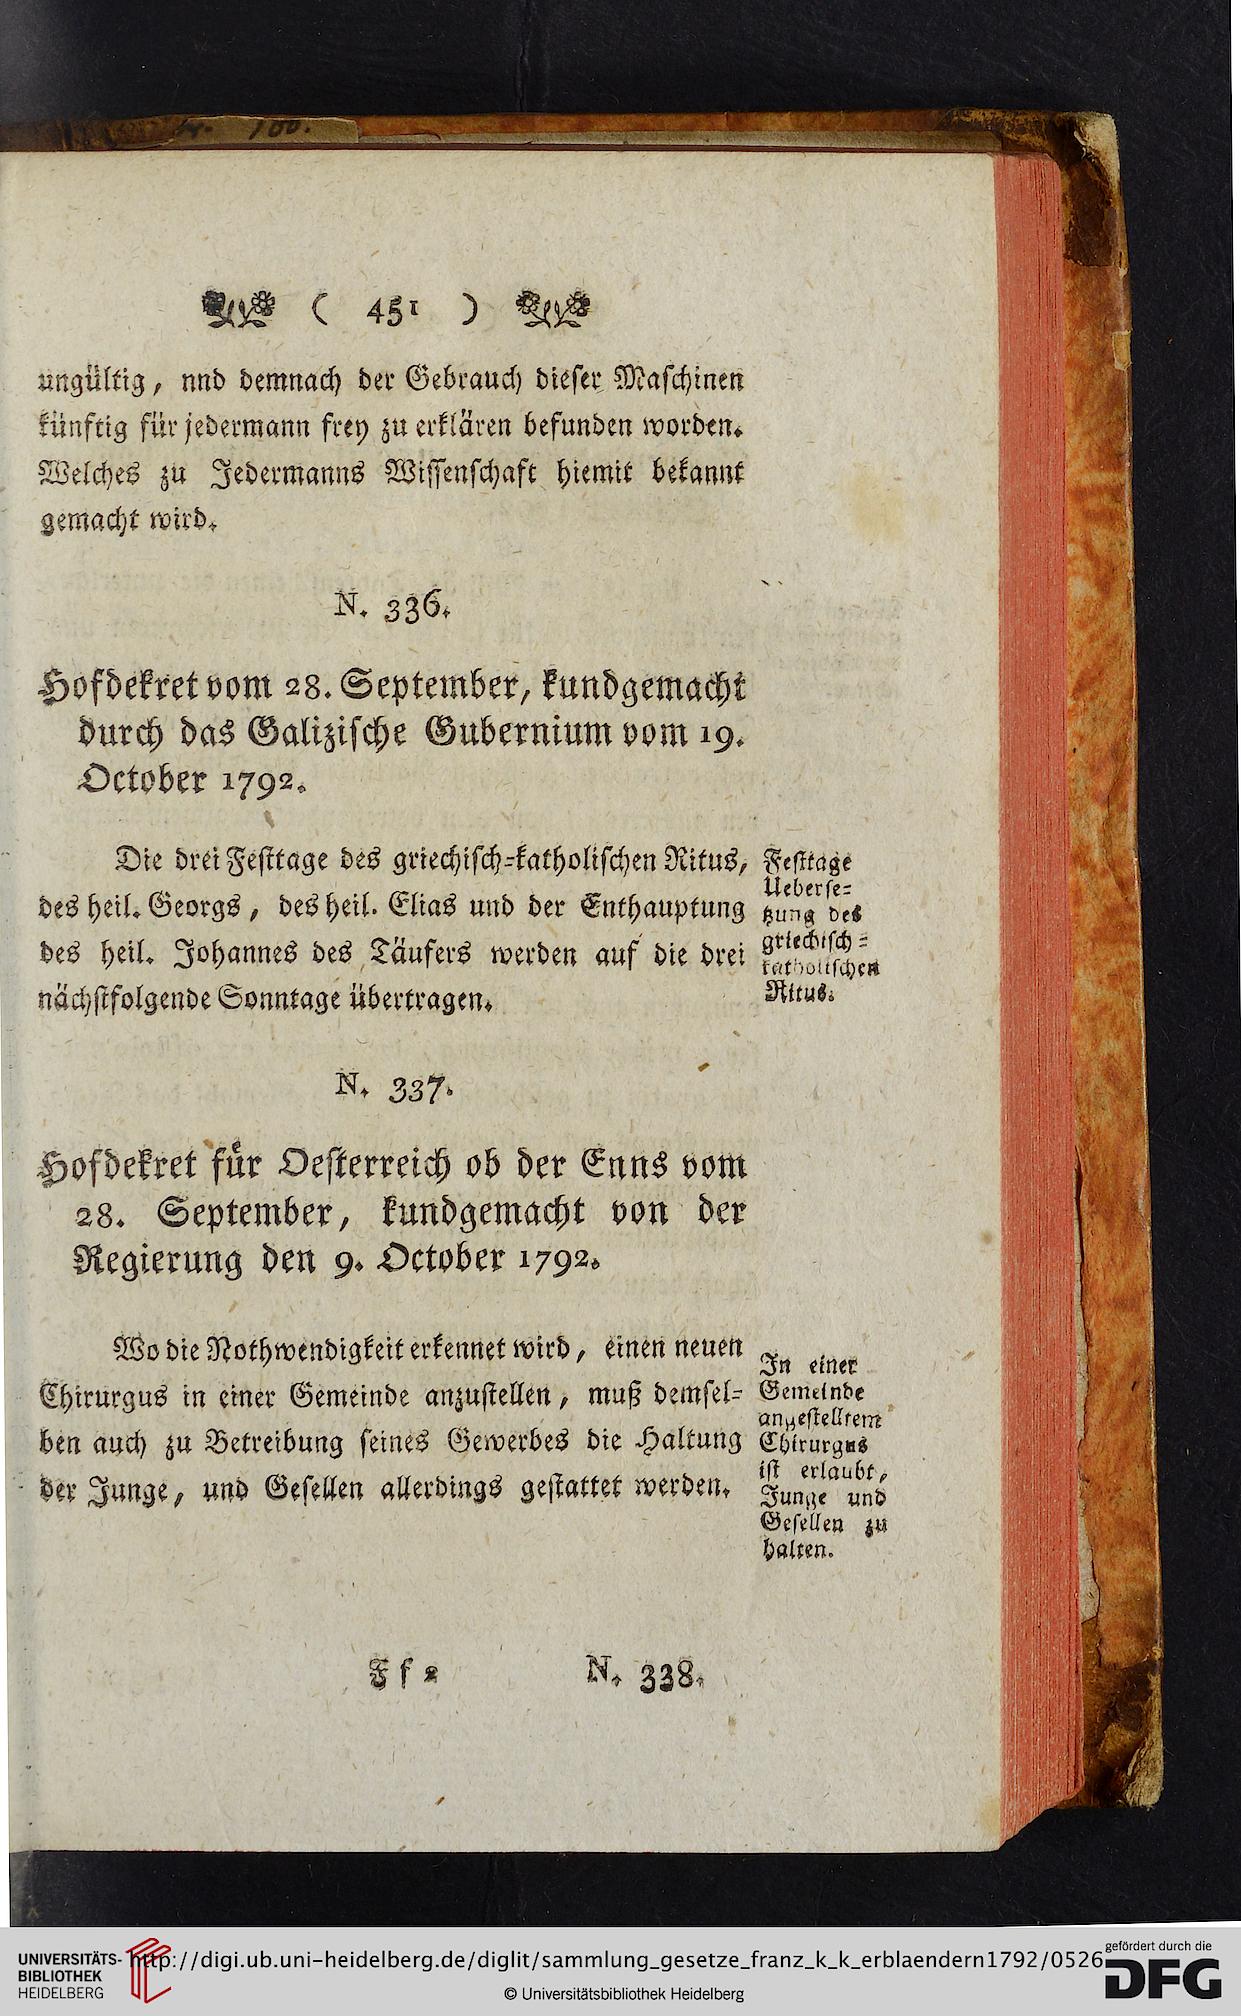 ( 451 )
ungültig, nnd demnach der Gebrauch dieser Maschinen
künftig für jedermann frey zu erklären befunden worden.
Welches zu Jedermanns Wissenschaft hiemit bekannt
gemacht wird.
N. 336.
Hofdekret vom 28. September, kundgemacht
durch das Galizische Gubernium vom 19.
October 1792.
Die drei Festtage des griechisch-katholischen Ritus,
des heil. Georgs, des heil. Elias und der Enthauptung
des heil. Johannes des Täufers werden auf die drei
nächstfolgende Sonntage übertragen.
Festtage
Ueberse-
tzung des
griechisch-
katholischen
Ritus.
N. 337.
Hofdekret für Oesterreich ob der Enns vom
28. September, kundgemacht von der
Regierung den 9. October 1792.
Wo die Nothwendigkeit erkennet wird, einen neuen
Chirurgus in einer Gemeinde anzustellen, muß demsel-
ben auch zu Betreibung seines Gewerbes die Haltung
der Junge, und Gesellen allerdings gestattet werden.
In einer
Gemeinde
angestelltem
Chirurgus
ist erlaubt,
Junge und
Gesellen zu
halten.
F f 2 N. 338.
UNIVERSITÄTS-
BIBLIOTHEK
HEIDELBERG
http://digi.ub.uni-heidelberg.de/diglit/sammlung_gesetze_franz_k_k_erblaendern1792/0526
© Universitätsbibliothek Heidelberg
gefördert durch die
DFG